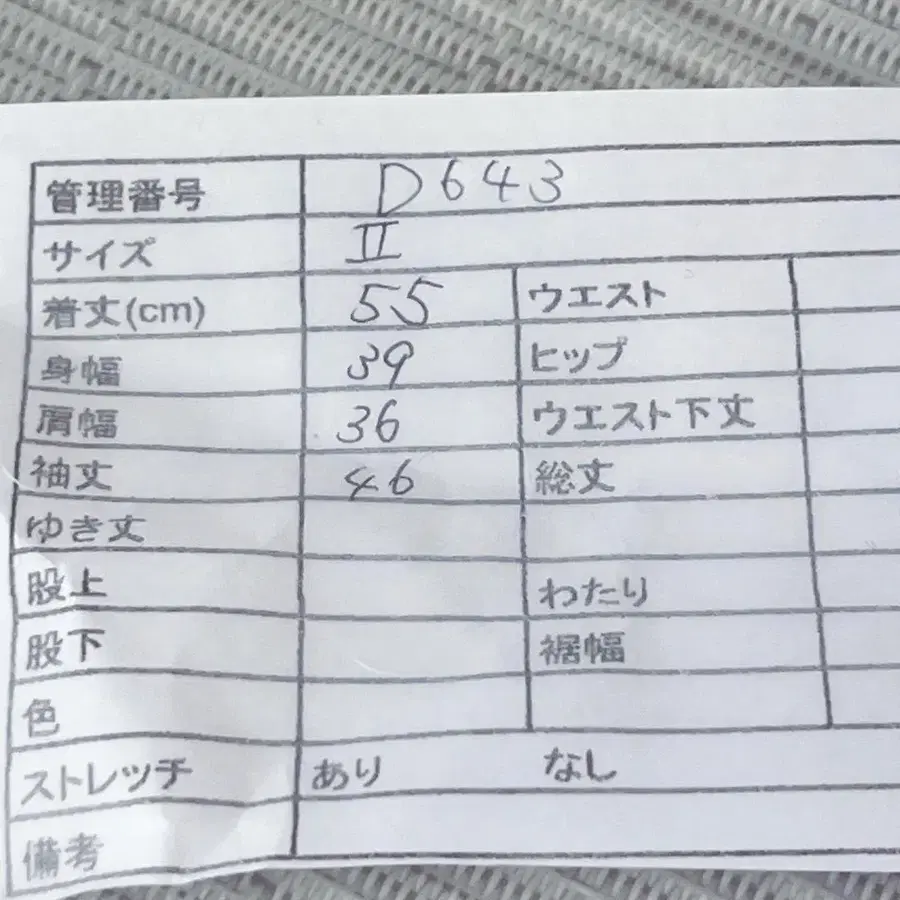 管理番号 D643
サイズ II
着丈(cm) 55 ウエスト
身幅 39 ヒップ
肩幅 36 ウエスト下丈
袖丈 46 総丈
ゆき丈
股上 わたり
股下 裾幅
色
ストレッチ あり なし
備考